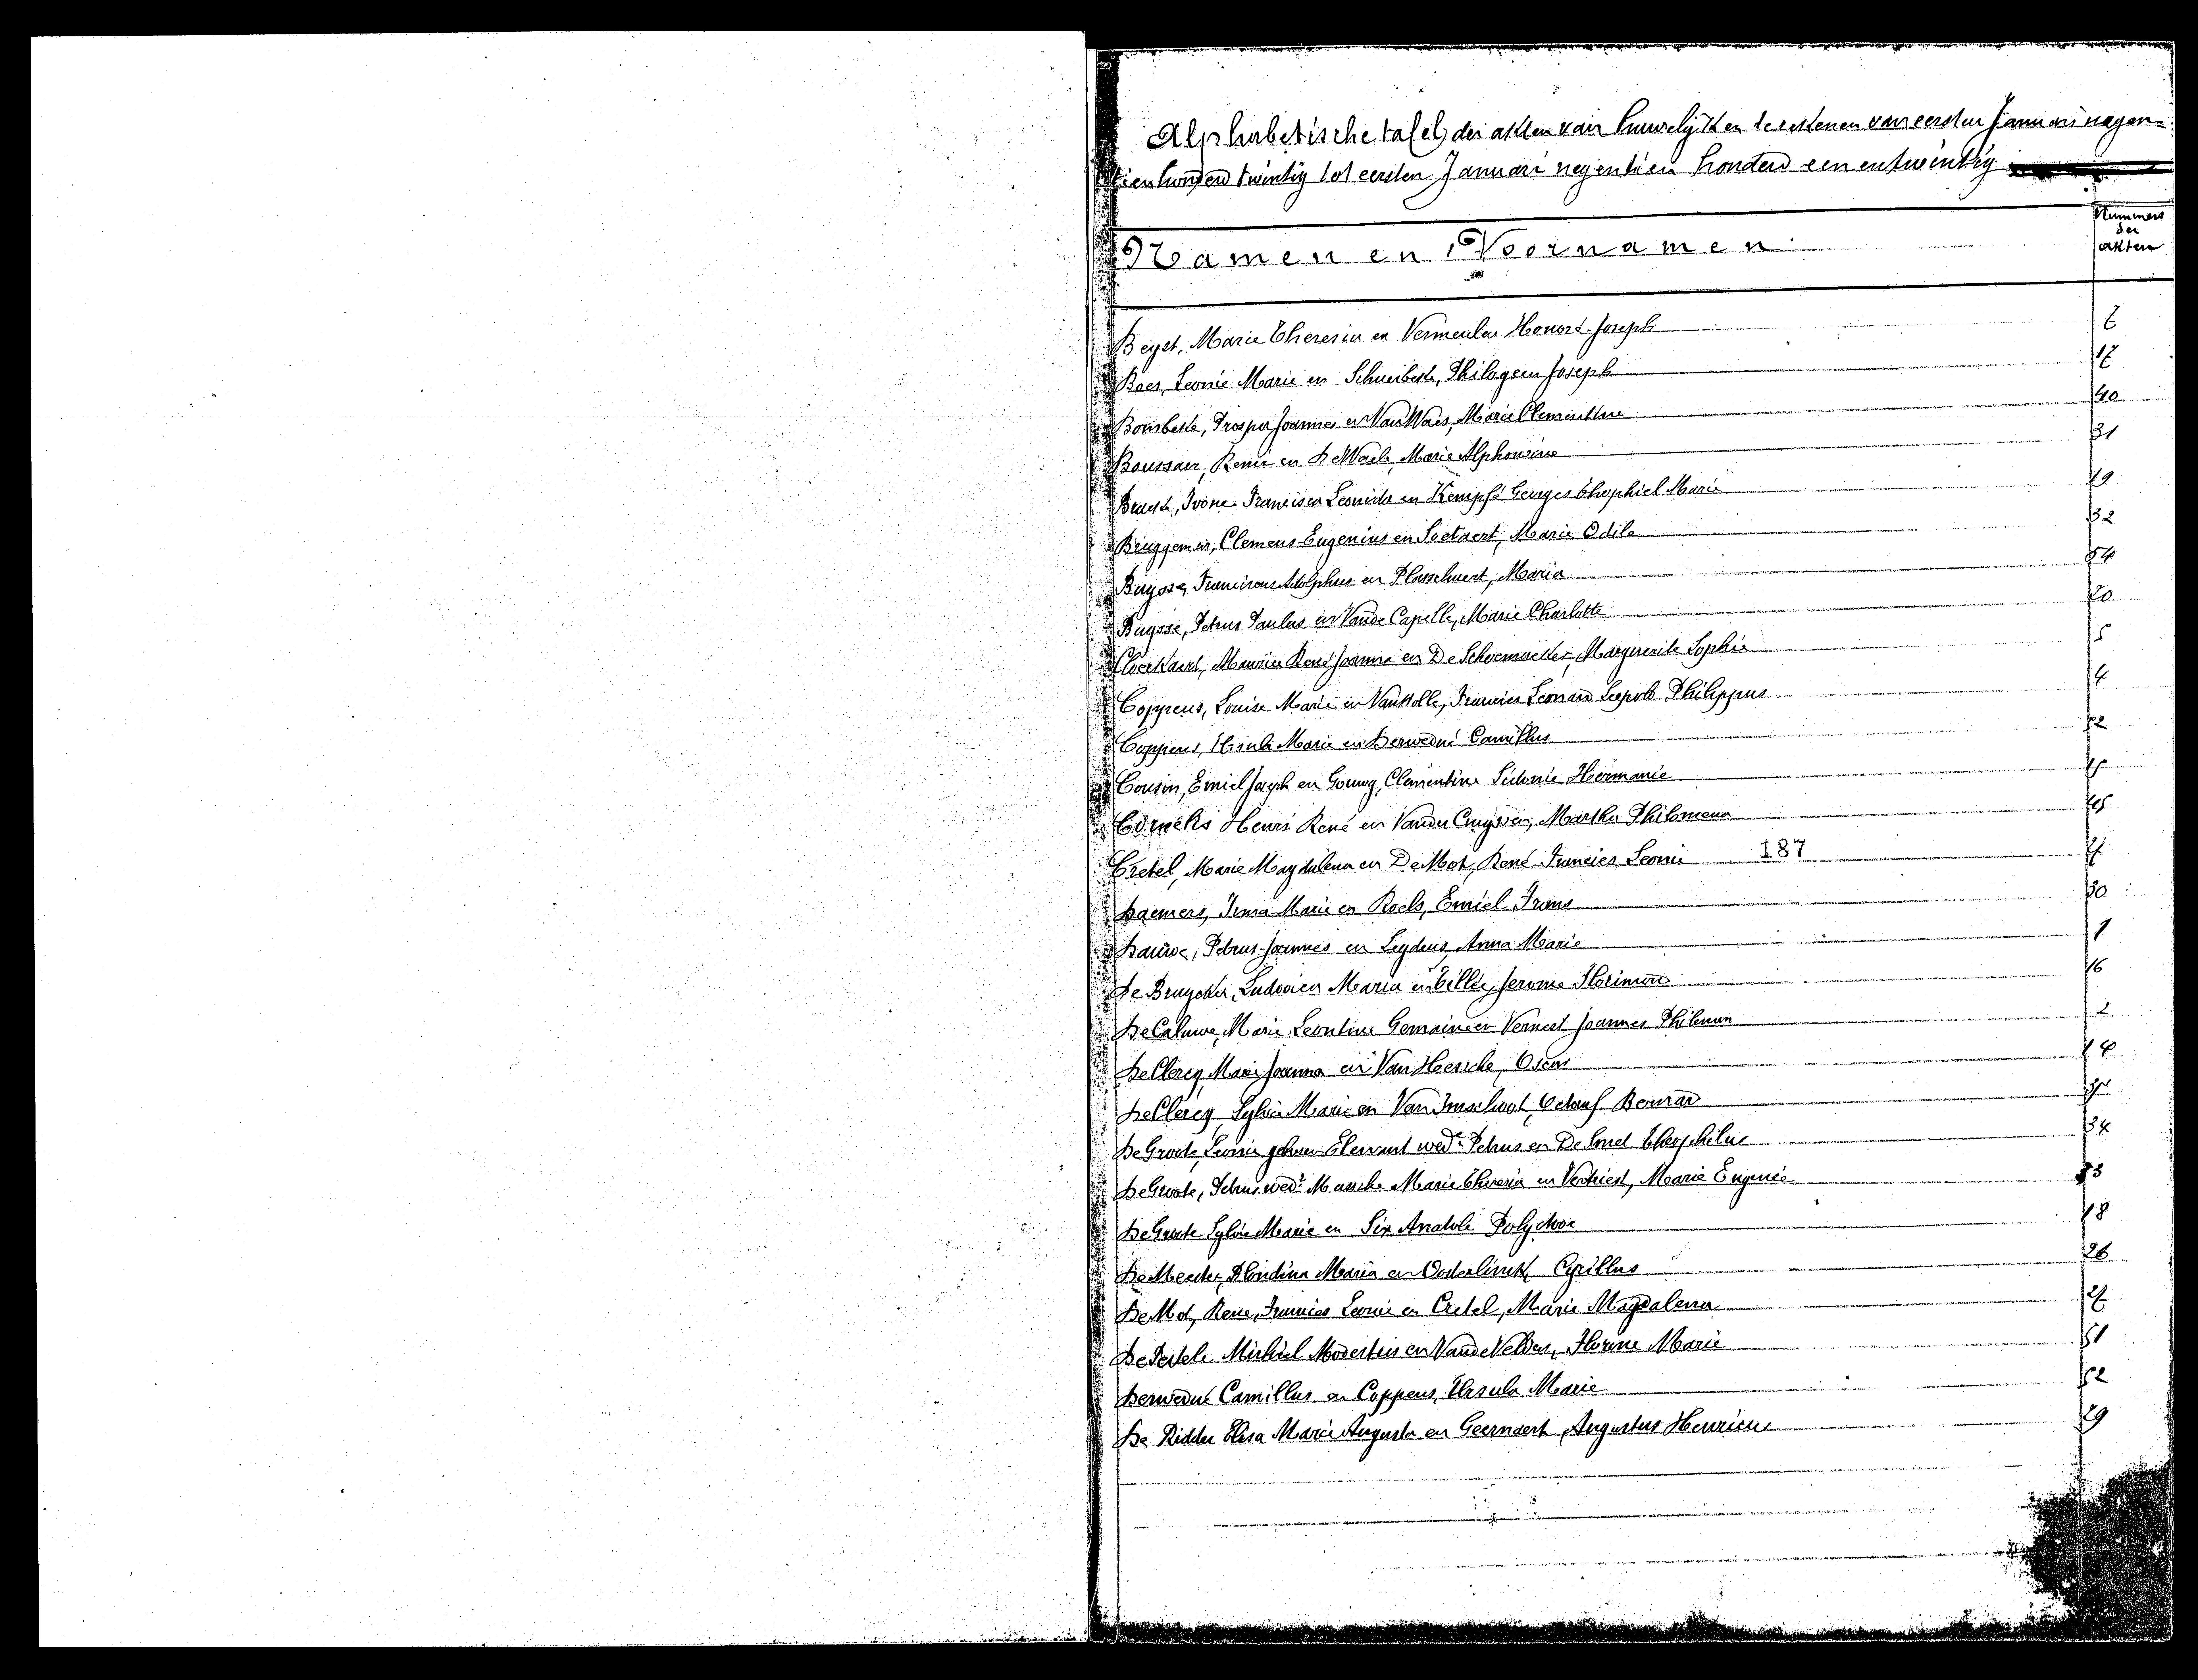 Alphabetische tafel der akten van huwelijken te rekenen van eersten Januari negen=
tien honderd twintig tot eersten Januari negentien honderd een en twintig
Nummers
der
akten
Namen en Voornamen
Beyst, Marie Theresia en Vermeulen Honoré Joseph 6
Boes, Leonie Marie en Schuerbeke, Philogeen Joseph 17
Boursbeke, Prosper Joannes en Van Waes, Marie Clementine 40
Boussaer, Remi en De Waele, Marie Alphonsine 31
Ivone Francisca Leonida en Kempfé Georges Theophiel Marie 19
Bruggeman, Clemens Eugenius en Soetaert, Marie Odile 32
Buysse, Franciscus Adolphus en Plasschaert, Maria 54
Buysse, Petrus Paulus en Vande Capelle, Marie Charlotte 20
Claerhaert, Maurice René Joanna en De Schoenmacker, Marguerite Sophie 5
Coppens, Louise Marie en Van Holle, Francies Leonard Leopold Philippus 4
Coppens, Ursula Marie en Derwedué Camillus 52
Cousin, Emiel Joseph en Gouwy, Clementina Sidonie Hermanie
Cornelis Henri René en Vander Cruyssen, Martha Philomena 45
Cretel, Marie Magdalena en De Mot, René Francies Leonie 187 27
Daemers, Irma Marie en Roels, Emiel Frans 30
Dauwe, Petrus Joannes en Leydens Anna Marie 1
De Bruycker, Ludovica Maria en Tillie, Jerome Florimond 16
De Caluwe, Marie Leontine Germaine en Vernest Joannes Philemon 2
De Clercq Marie Joanna en Van Heesche, Oscar 14
De Clercq Sylvie Marie en Van Imschoot, Octaaf Bernard
De Groote, Leonie wede Petrus en De Smet Theophilus 34
De Groote, Petrus wedr Marie Theresia en Verhiest, Marie Eugenie 33
De Groote Sylvie Marie en Six Anatole Polydoor 18
De Meester, Blondina Maria en Oosterlinck, Cyrillus 26
De Mot, Rene, Francies Leonie en Cretel, Marie Magdalena 27
Michiel Modestus en Vande Velden, Florine Marie 51
Derwedué Camillus en Coppens, Ursula Marie 52
De Ridder Elisa Marie Augusta en Geernaert, Augustus Henricus 29